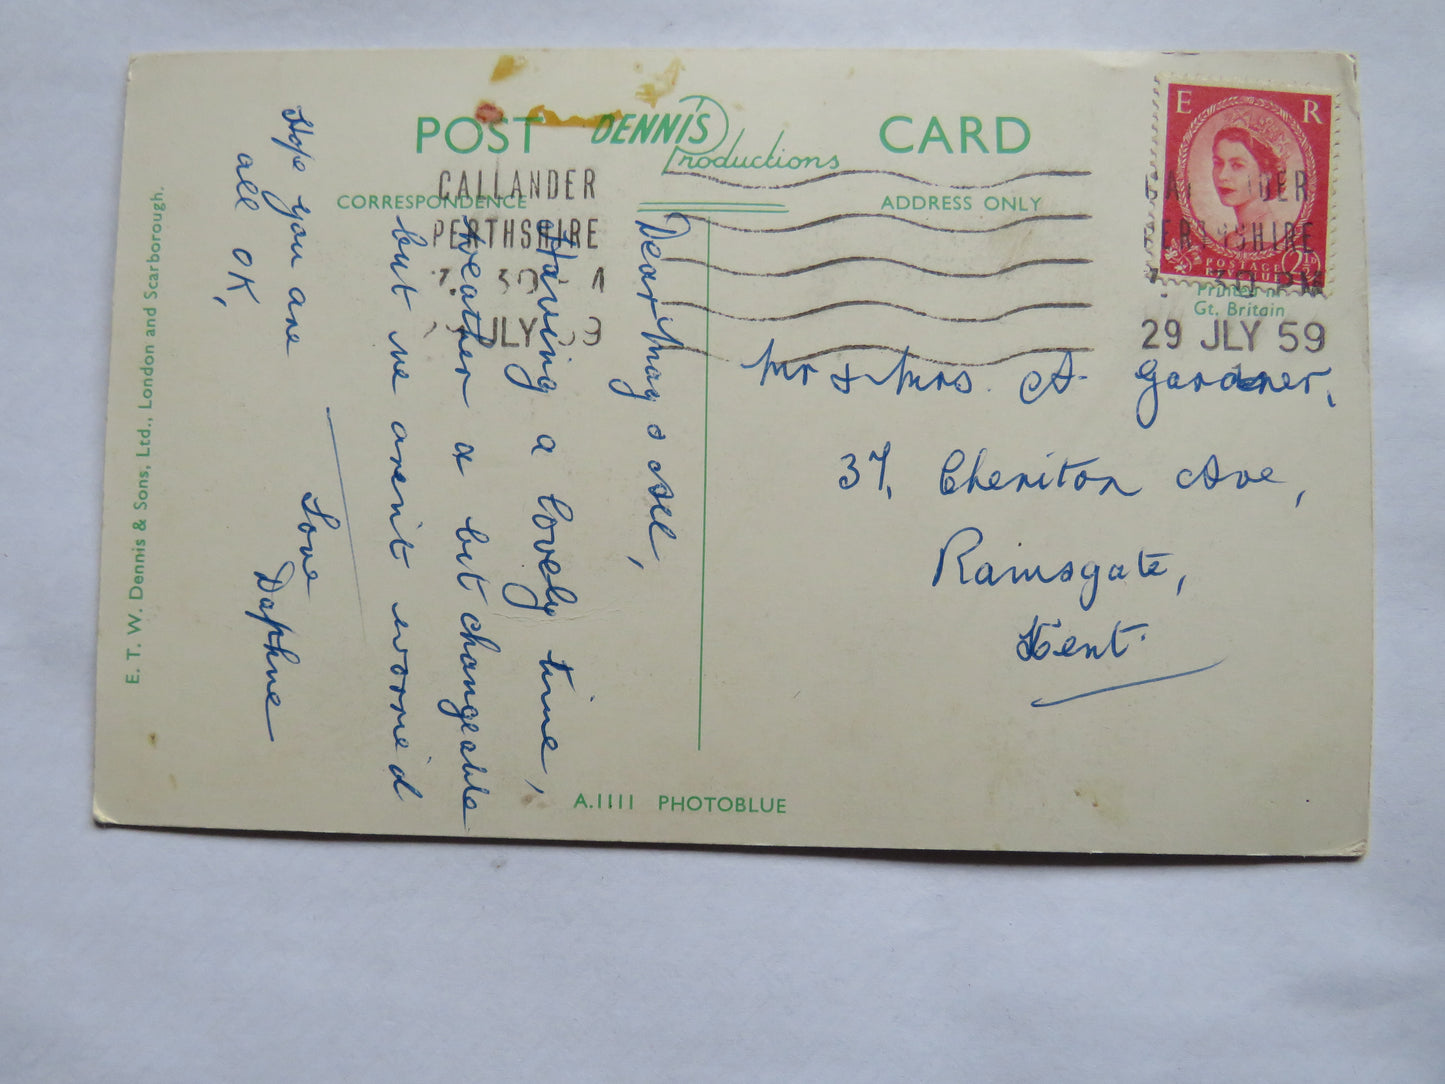 POST DENNIS Productions CARD
CORRESPONDENCE
ADDRESS ONLY
CALLANDER
PERTHSHIRE
JLY 59
E R
POSTAGE REVENUE
2½D
PERTHSHIRE
30 PM
29 JLY 59
Printed in
Gt. Britain
Dear May & All,
Having a lovely time,
weather a bit changeable
but we aren't worried
Hope you are
all OK,
Love
Daphne
Mr & Mrs. A. Gardner,
37, Cheriton Ave,
Ramsgate,
Kent.
A.1111 PHOTOBLUE
E. T. W. Dennis & Sons, Ltd., London and Scarborough.